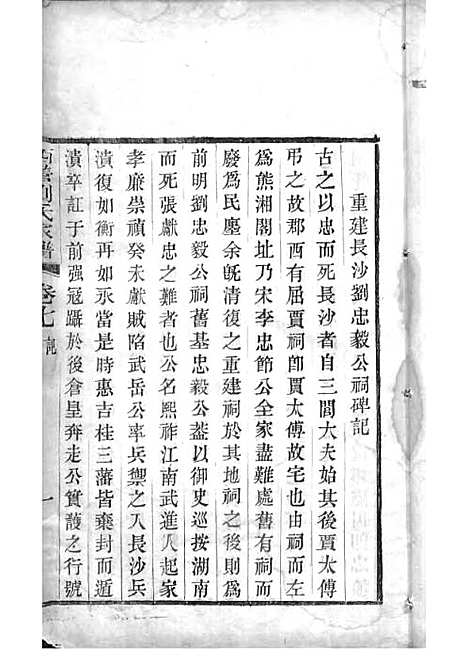 重建長沙劉忠毅公祠碑記
古之以忠而死長沙者自三閭大夫始其後賈太傅
弔之故郡西有屈賈祠卽賈太傅故宅也由祠而左
爲熊湘閣址乃宋李忠節公全家盡難處舊有祠而
廢爲民廛余旣清復之重建祠於其地祠之後則爲
前明劉忠毅公祠舊基忠毅公葢以御史巡按湖南
而死張獻忠之難者也公名熙祚江南武進人起家
孝廉崇禎癸未獻賊陷武岳公率兵禦之入長沙兵
潰復如衡再如永當是時惠吉桂三藩皆棄封而遁
潰卒訌于前强冠躡於後倉皇奔走公實護之行號
劉氏家譜
卷七
記
一